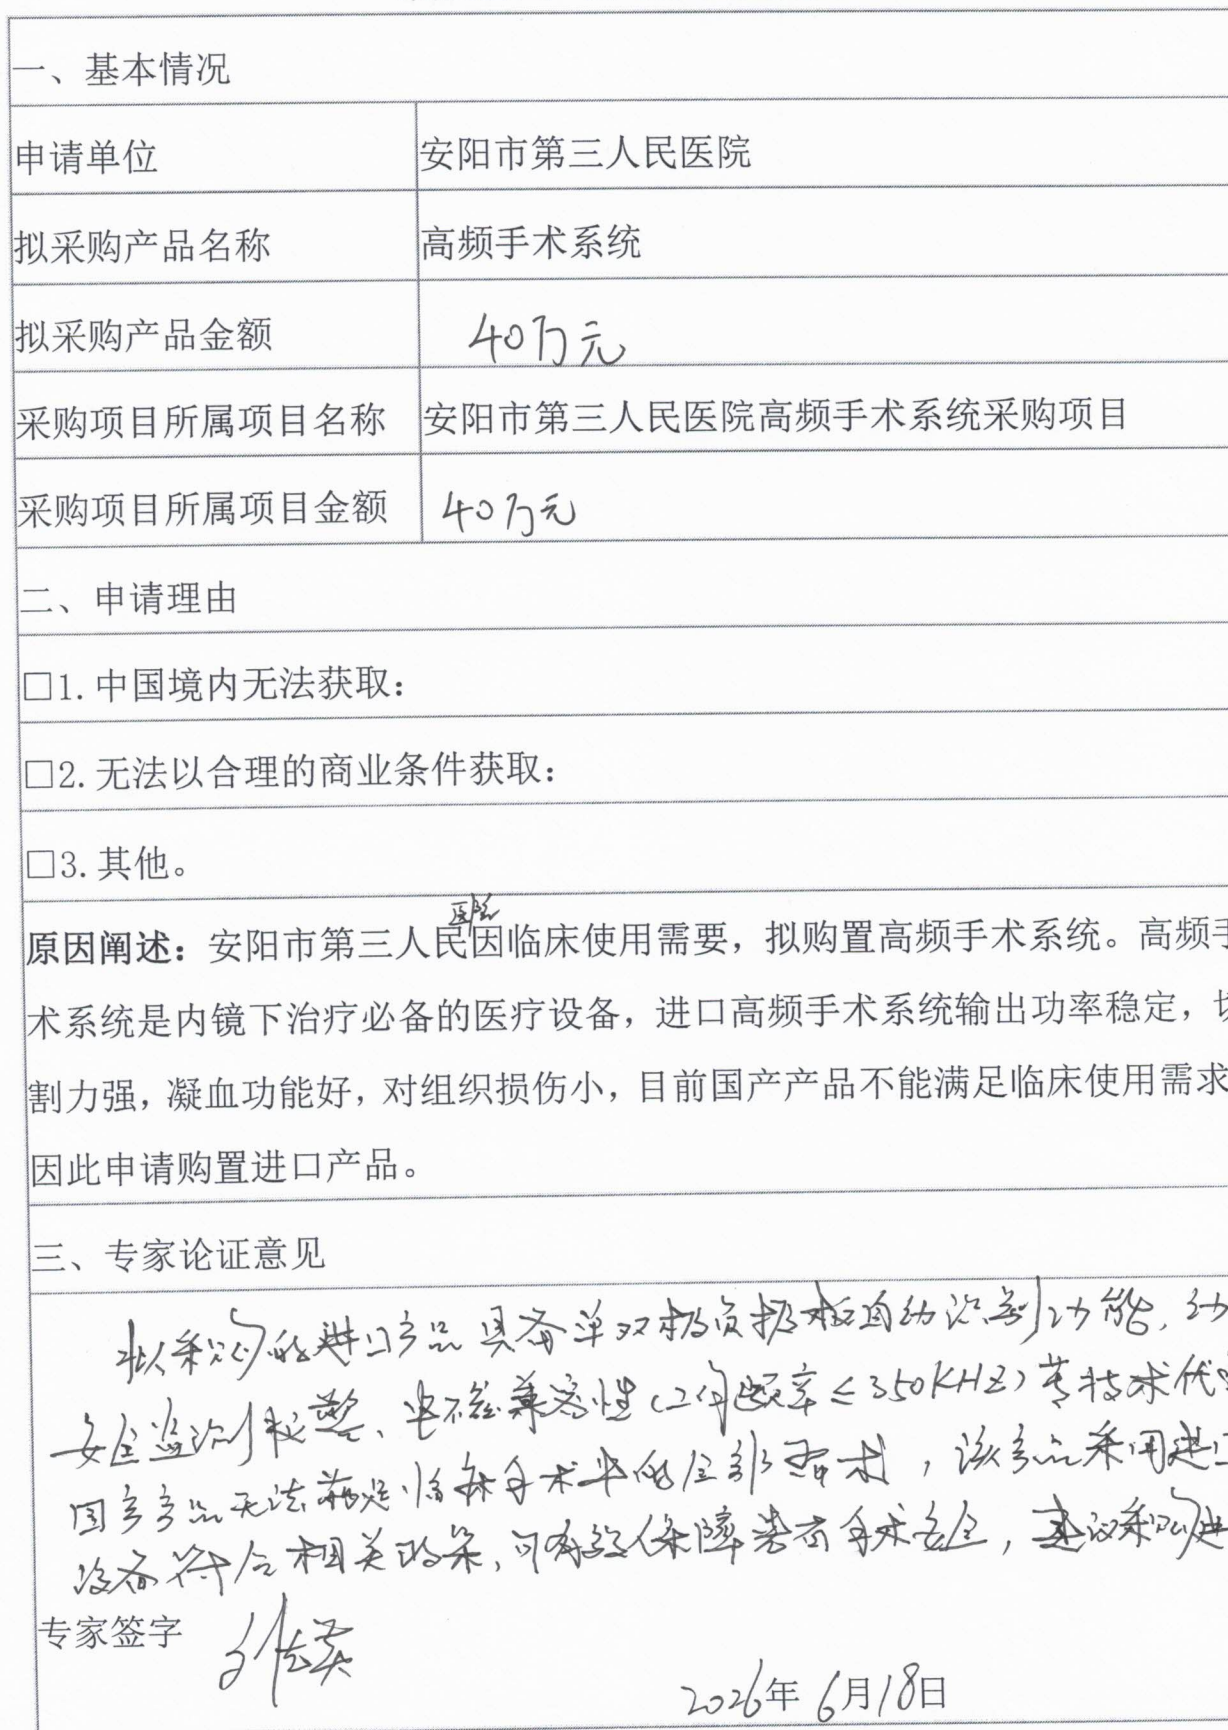 一、基本情况
申请单位 安阳市第三人民医院
拟采购产品名称 高频手术系统
拟采购产品金额 40万元
采购项目所属项目名称 安阳市第三人民医院高频手术系统采购项目
采购项目所属项目金额 40万元
二、申请理由
□1.中国境内无法获取：
□2.无法以合理的商业条件获取：
□3.其他。
医院
原因阐述：安阳市第三人民因临床使用需要，拟购置高频手术系统。高频手
术系统是内镜下治疗必备的医疗设备，进口高频手术系统输出功率稳定，切
割力强，凝血功能好，对组织损伤小，目前国产产品不能满足临床使用需求
因此申请购置进口产品。
三、专家论证意见
拟采购的进口产品具备单双极负极板自动识别功能，
安全监测报警、电磁兼容性（工作频率≤350KHZ）等技术优
国产产品无法满足临床手术中的全部需求，该产品采用进口
设备符合相关政策，可有效保障患者手术安全，建议采购进
专家签字
2026年6月18日